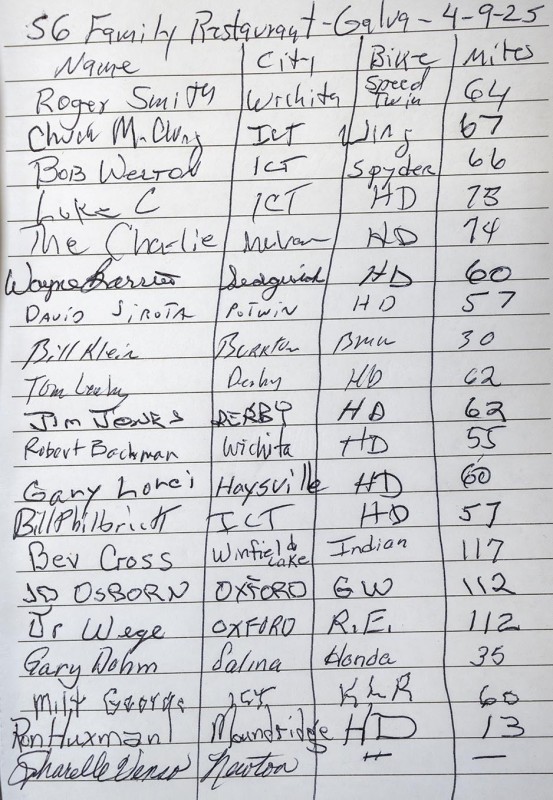 56 Family Restaurant - Galva - 4-9-25
Name City Bike Miles
Roger Smith Wichita Speed Twin 64
Chuck McClung ICT Wing 67
Bob Weston ICT Spyder 66
Luke C ICT HD 73
The Charlie HD 74
Wayne Sedgwick HD 60
David Sirota Potwin HD 57
Bill Klein Burrton Bmw 30
Tom Derby HD 62
Jim Jones DERBY HD 62
Robert Backman Wichita HD 55
Gary Haysville HD 60
Bill Philbrick ICT HD 57
Bev Cross Winfield Lake Indian 117
JD OSBORN OXFORD GW 112
Jr Wege OXFORD R.E. 112
Gary Dohm Salina Honda 35
Milt George ICT KLR 60
Ron Huxman Moundridge HD 13
Sharelle Newton " —